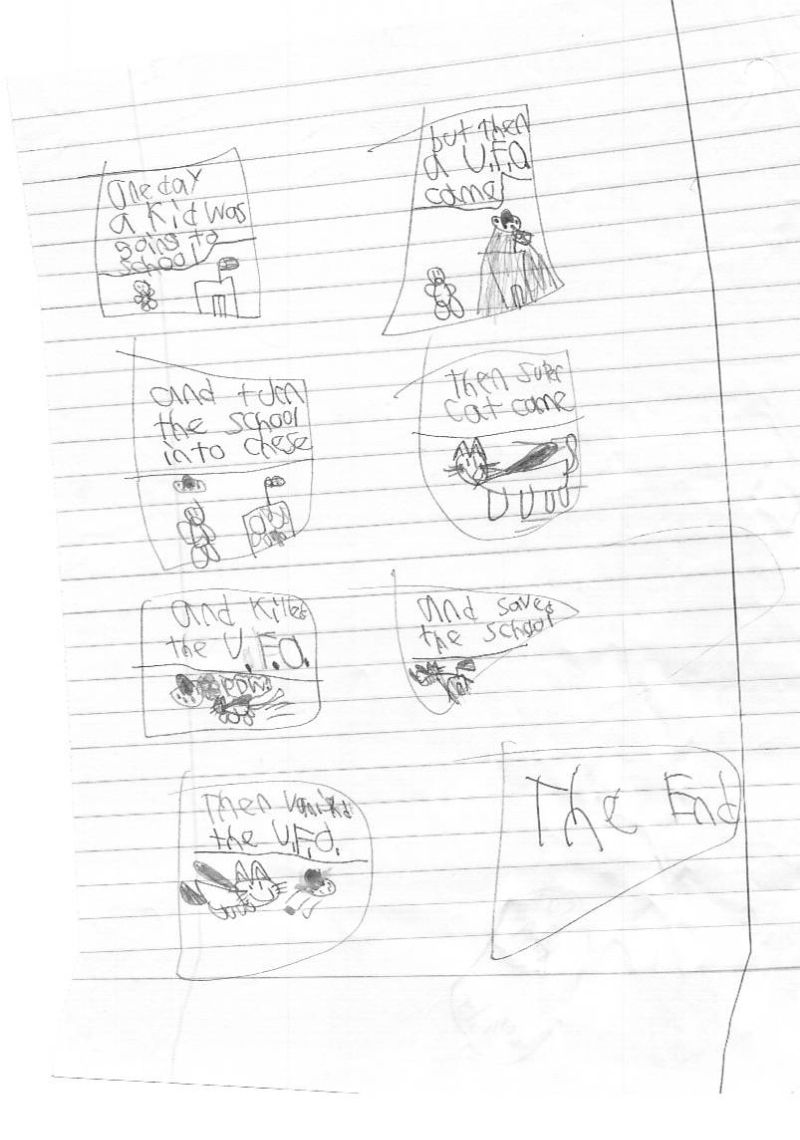 one day
a kid was
going to
school
but then
a U.F.O.
came
and turn
the school
into chese
then super
cat came
and killed
the U.F.O.
POW
and saved
the school
Then
the U.F.O.
The End